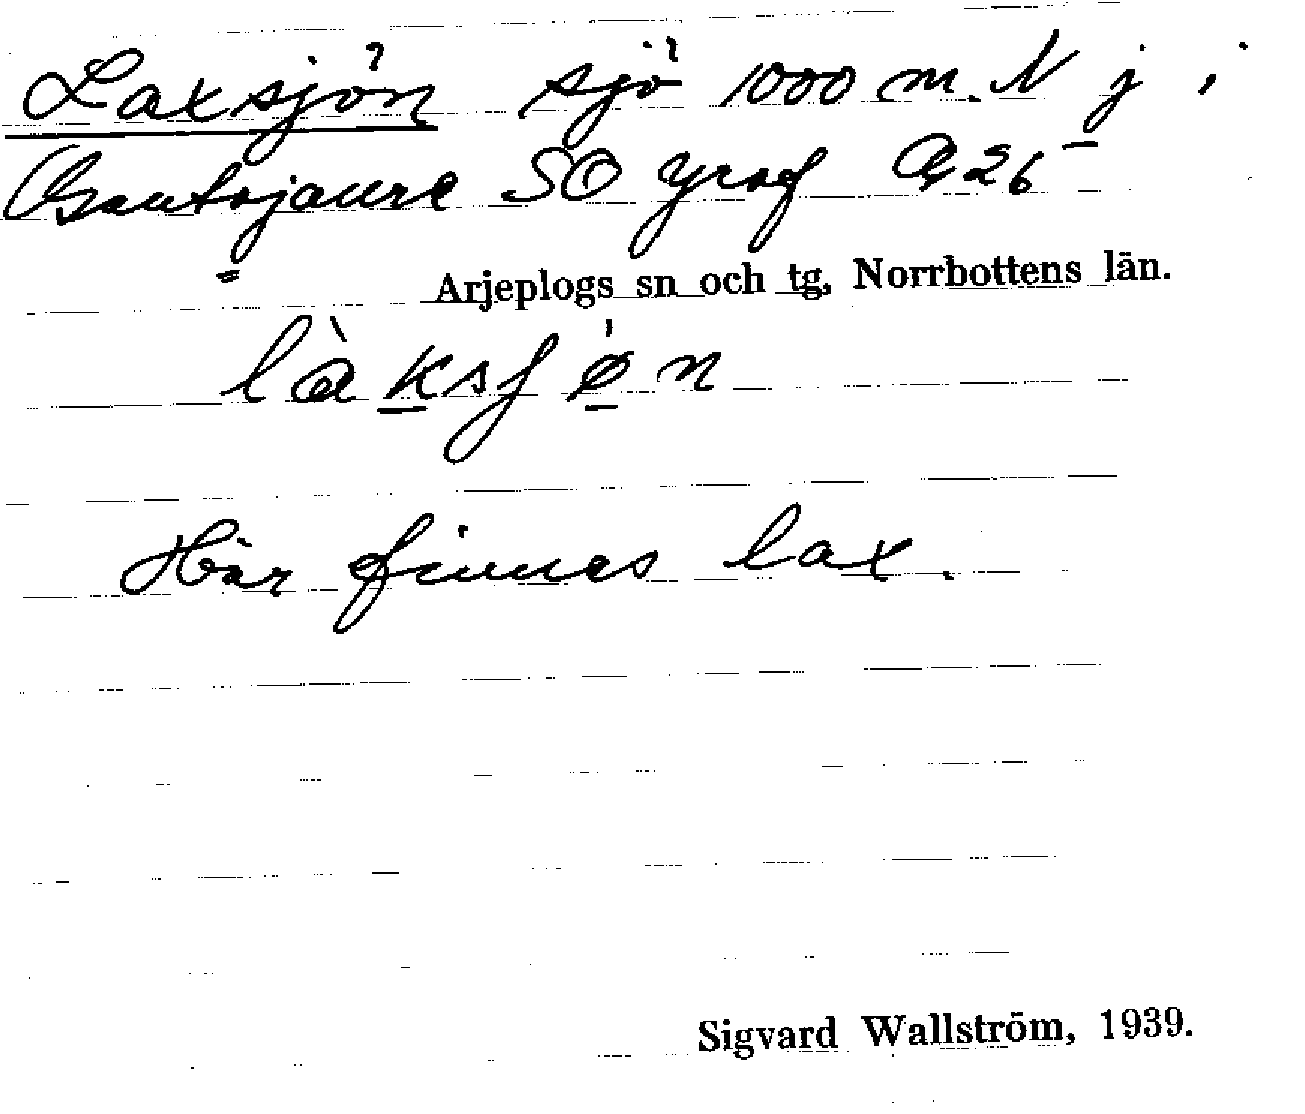 Laxsjön sjö 1000 m. N j i
SO 26
Arjeplogs sn och tg, Norrbottens län.
làksjø̱n
Här finnes lax.
Sigvard Wallström, 1939.